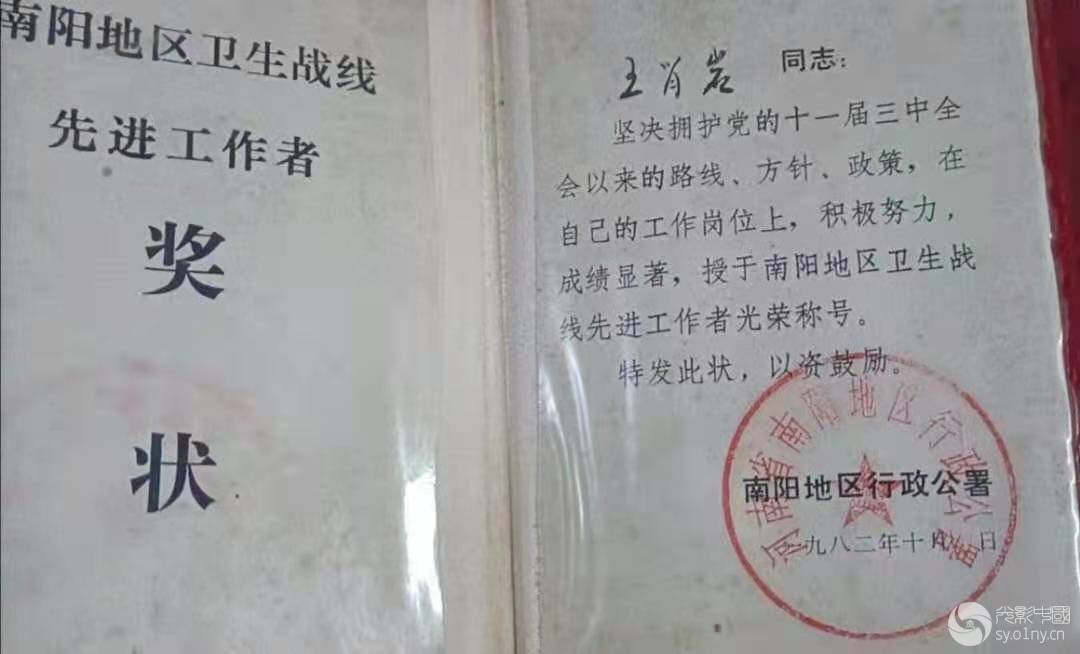 南阳地区卫生战线
先进工作者
奖
状
王肖岩 同志：
坚决拥护党的十一届三中全
会以来的路线、方针、政策，在
自己的工作岗位上，积极努力，
成绩显著，授于南阳地区卫生战
线先进工作者光荣称号。
特发此状，以资鼓励。
河南省南阳地区行政公署
南阳地区行政公署
一九八二年十月 日
光影中國
sy.01ny.cn